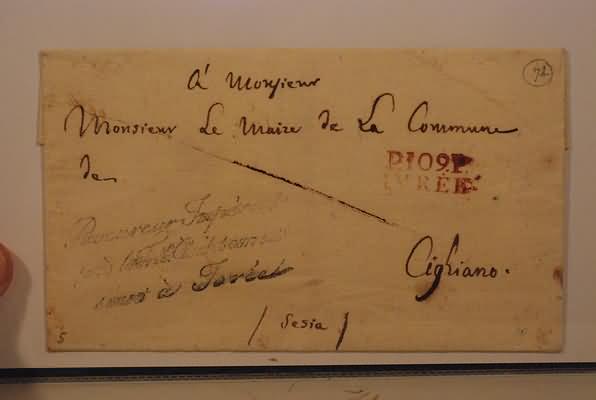 72
à Monsieur
Monsieur Le Maire de La Commune
de
P.109.P.
IVRÉE
Procureur Impérial
à Ivrée
Cigliano.
/ Sesia /
5